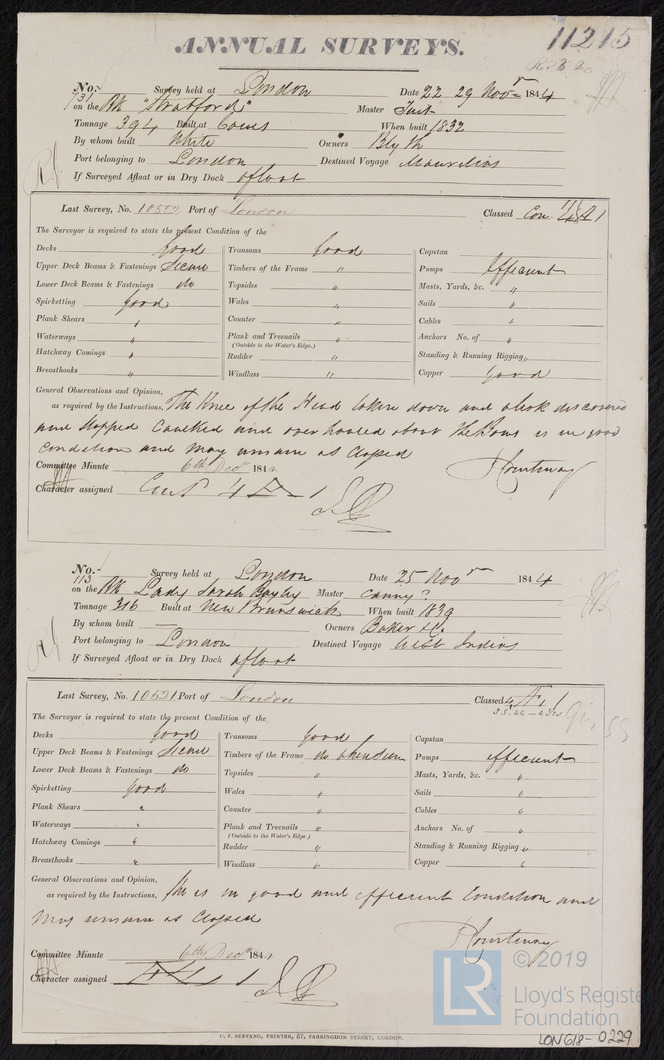 11215
ANNUAL SURVEYS.
No. 131 Survey held at London Date 22 29 Novr 1844
on the Bk "Stratford" Master
Tonnage 394 Built at Cowes When built 1832
By whom built White Owners Blyth
Port belonging to London Destined Voyage Mauritius
If Surveyed Afloat or in Dry Dock afloat
Last Survey, No. Port of London Classed Con. 4 A 1
The Surveyor is required to state the present Condition of the
Decks good Transoms Good Capstan
Upper Deck Beams & Fastenings Secure Timbers of the Frame " Pumps Efficient
Lower Deck Beams & Fastenings do Topsides " Masts, Yards, &c. "
Spirketting good Wales " Sails "
Plank Shears " Counter " Cables "
Waterways " Plank and Treenails " Anchors No. of "
(Outside to the Water's Edge.)
Hatchway Comings " Rudder " Standing & Running Rigging "
Breasthooks " Windlass " Copper Good
General Observations and Opinion,
as required by the Instructions, The Knee of the Head taken down and
and stopped Caulked and overhauled about the Bows is in good
Condition and may remain as Classed
Committee Minute 6th Decr 1844 Courtenay
Character assigned Cont 4 A 1
No. 113 Survey held at London Date 25 Novr 1844
on the Bk Lady Sarah Bayley Master Canny?
Tonnage 316 Built at New Brunswick When built 1839
By whom built — Owners Baker &c.
Port belonging to London Destined Voyage West Indies
If Surveyed Afloat or in Dry Dock afloat
Last Survey, No. 10531 Port of London Classed 4 A 1
The Surveyor is required to state the present Condition of the
Decks Good Transoms Good Capstan
Upper Deck Beams & Fastenings Secure Timbers of the Frame do Pumps efficient
Lower Deck Beams & Fastenings do Topsides " Masts, Yards, &c. "
Spirketting Good Wales " Sails "
Plank Shears " Counter " Cables "
Waterways " Plank and Treenails " Anchors No. of "
(Outside to the Water's Edge.)
Hatchway Comings " Rudder " Standing & Running Rigging "
Breasthooks " Windlass " Copper "
General Observations and Opinion,
as required by the Instructions, She is in good and efficient Condition and
may remain as Classed
Courtenay
Committee Minute 6th Decr 1844
Character assigned 4 A 1
C. F. SEYFANG, PRINTER, 57, FARRINGDON STREET, LONDON.
LR © 2019
Lloyd's Register
Foundation
LON618-0229